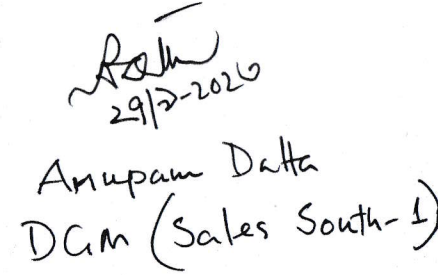 29/2-2020
Anupam Datta
DGM (Sales South-1)